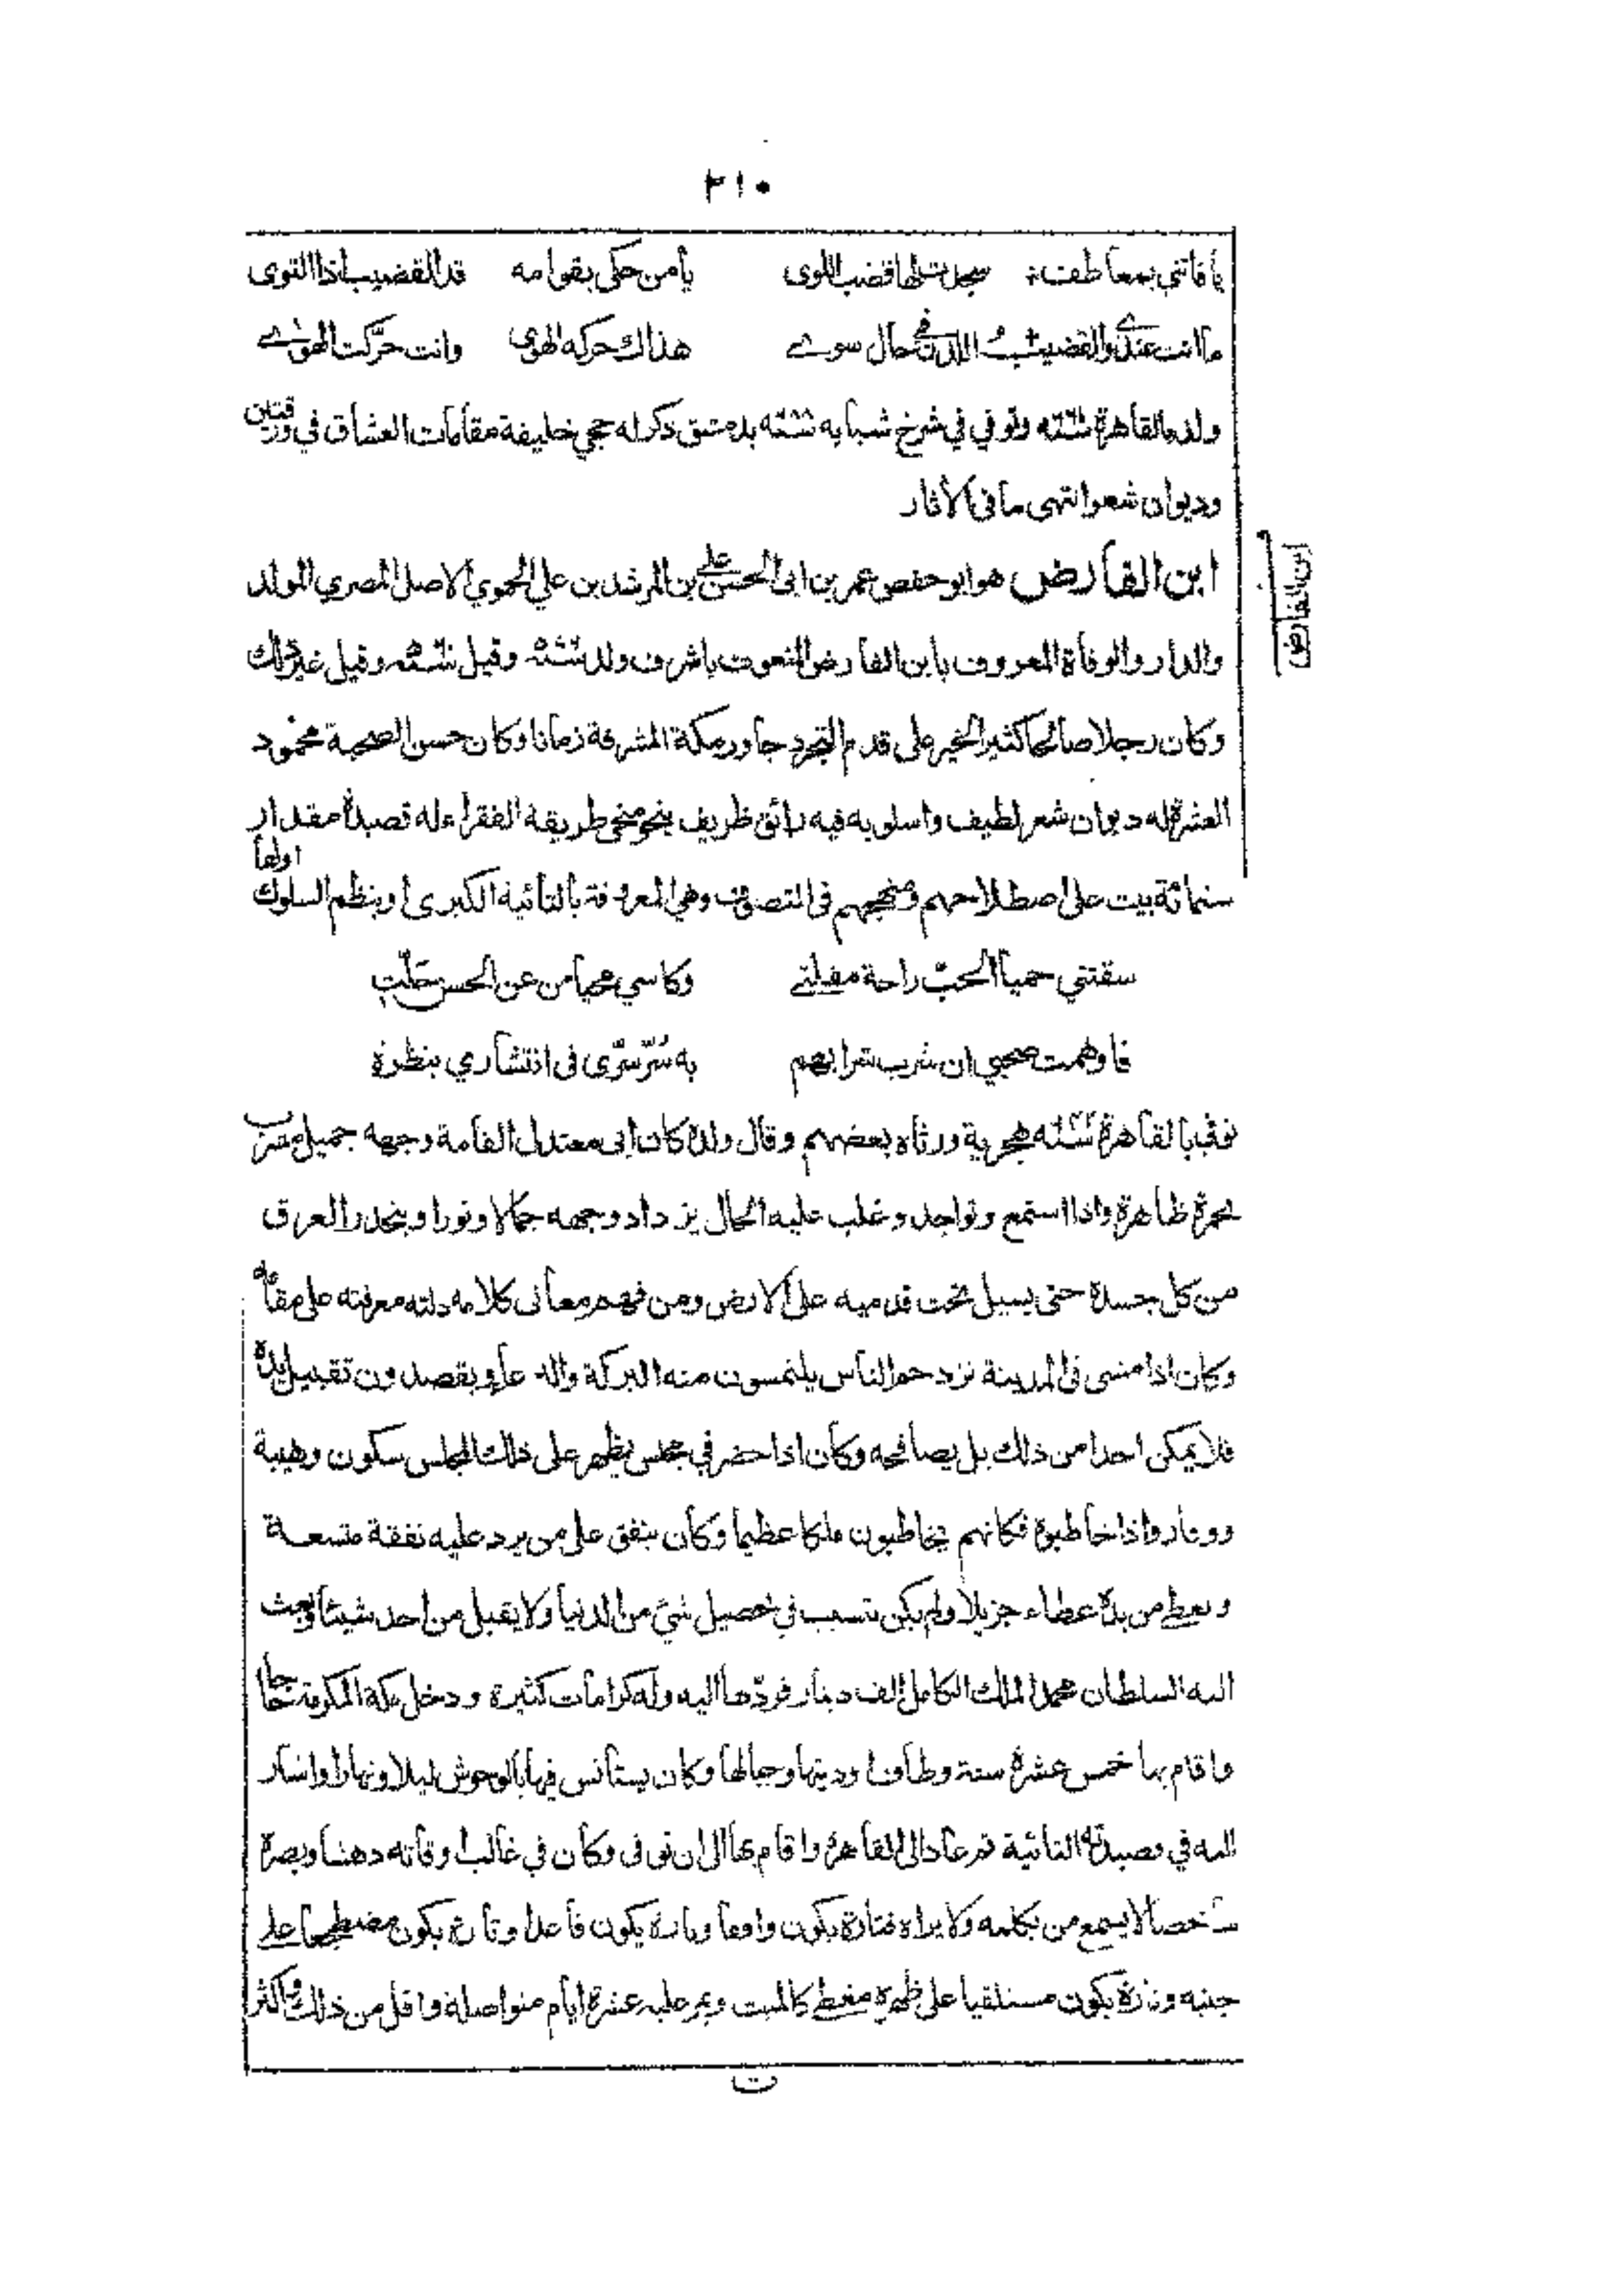 ٢١٠
يا فاتني بمعاطف سجدت لها قضب اللوى يا من حكى بقوامه قد القضيب اذا التوى
ما انت عندي والقضيب اللدن في حال سوى هذاك حركه الهوى وانت حركت الهوى
ولد بالقاهرة وتوفي في شرخ شبابه بدمشق ذكر له حجي خليفة مقامات العشاق في ورقتين
وديوان شعر انتهى ما في الاثار
ابن الفارض
ابن الفارض هو ابو حفص عمر بن ابى الحسن علي بن المرشد بن علي الحموي الاصل المصري المولد
والدار والوفاة المعروف بابن الفارض المنعوت باشرف ولد وقيل وقيل غير ذلك
وكان رجلا صالحا كثير الخير على قدم التجرد جاور مكة المشرفة زمانا وكان حسن الصحبة محمود
العشرة له ديوان شعر لطيف واسلوبه فيه رائق ظريف ينحو منحى طريقة الفقراء له قصيدة مقدار
ستمائة بيت على اصطلاحهم ومنهجهم فى التصوف وهي المعروفة بالتائية الكبرى او بنظم السلوك اولها
سقتني حميا الحبّ راحة مقلتي وكاسي محيا من عن الحسن جَلّتِ
فاوهمت صحبي ان شرب شرابهم به سُرّ سرّى فى انتشاري بنظرة
توفي بالقاهرة هجرية ورثاه بعضهم وقال ولده كان ابى معتدل القامة وجهه جميل مشرب
بحمرة ظاهرة واذا استمع وتواجد وغلب عليه الحال يزداد وجهه جمالا ونورا وينحدر العرق
من كل جسده حتى يسيل تحت قدميه على الارض ومن فهم معانى كلامه دلته معرفته على مقامه
وكان اذا مشى فى المدينة تزدحم الناس يلتمسون منه البركة والدعاء ويقصدون تقبيل يده
فلا يمكن احدا من ذلك بل يصافحه وكان اذا حضر في مجلس يظهر على ذلك المجلس سكون وهيبة
ووقار واذا خاطبوه فكانهم يخاطبون ملكا عظيما وكان ينفق على من يرد عليه نفقة متسعة
ويعطي من يده عطاء جزيلا ولم يكن يتسبب في تحصيل شئ من الدنيا ولا يقبل من احد شيئا وبعث
اليه السلطان محمد الملك الكامل الف دينار فردّها اليه وله كرامات كثيرة ودخل مكة المكرمة حاجا
واقام بها خمس عشرة سنة وطاف اوديتها وجبالها وكان يستأنس فيها بالوحوش ليلا ونهارا واشار
اليه في قصيدته التائية ثم عاد الى القاهرة واقام بها الى ان توفى وكان في غالب اوقاته دهشا وبصره
شاخصا لا يسمع من يكلمه ولا يراه فتارة يكون واقفا وتارة يكون قاعدا وتارة يكون مضطجعا على
جنبه وتارة يكون مستلقيا على ظهره مغطى كالميت ويمر عليه عشرة ايام متواصلة واقل من ذلك واكثر
ت